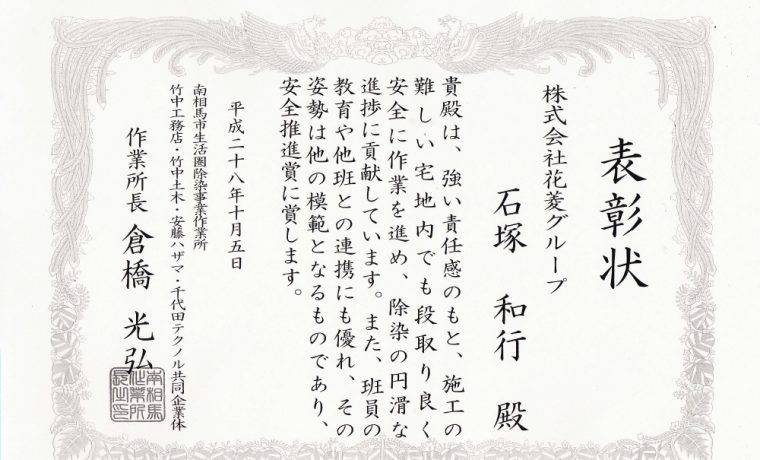 表彰状
株式会社花菱グループ
石塚 和行 殿
貴殿は、強い責任感のもと、施工の
難しい宅地内でも段取り良く
安全に作業を進め、除染の円滑な
進捗に貢献しています。また、班員の
教育や他班との連携にも優れ、その
姿勢は他の模範となるものであり、
安全推進賞に賞します。
平成二十八年十月五日
南相馬市生活圏除染事業作業所
竹中工務店・竹中土木・安藤ハザマ・千代田テクノル共同企業体
作業所長 倉橋 光弘
南相馬
作業所
長之印